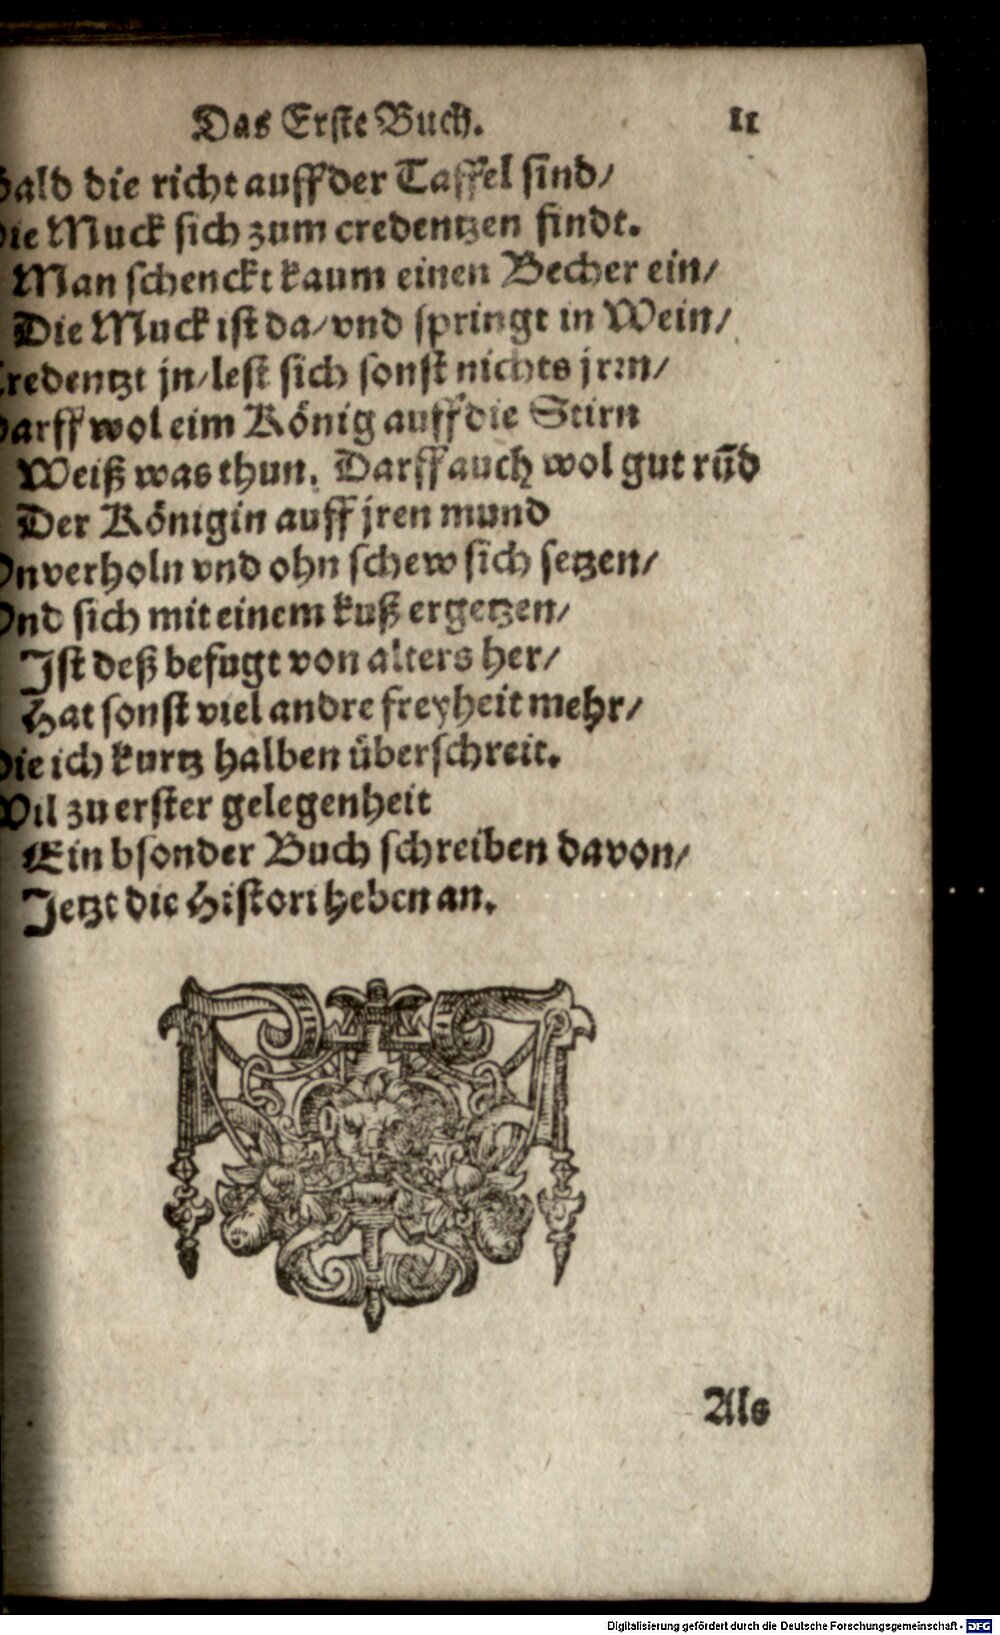 Das Erste Buch. 11
Bald die richt auff der Taffel sind/
Die Muck sich zum credentzen findt.
Man schenckt kaum einen Becher ein/
Die Muck ist da/ vnd springt in Wein/
Credentzt jn/ lest sich sonst nichts jrrn/
Darff wol eim König auff die Stirn
Weiß was thun. Darff auch wol gut rūd
Der Königin auff jren mund
Vnverholn vnd ohn schew sich setzen/
Vnd sich mit einem kuß ergetzen/
Ist deß befugt von alters her/
Hat sonst viel andre freyheit mehr/
Die ich kurtz halben überschreit.
Wil zu erster gelegenheit
Ein bsonder Buch schreiben davon/
Jetzt die Histori heben an.
Als
Digitalisierung gefördert durch die Deutsche Forschungsgemeinschaft - DFG